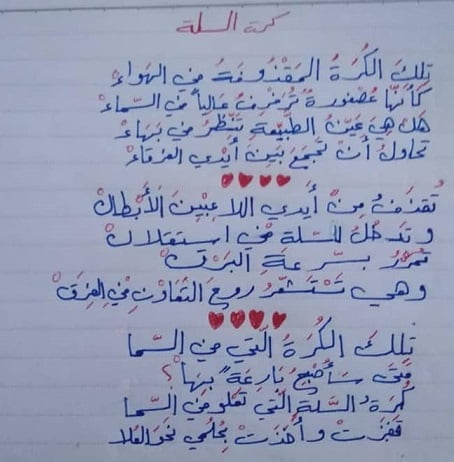 كرة السلة
تِلكَ الكُرَةُ المَقْذُوفَةُ في الهَواءْ
كَأَنَّها عُصْفُورَةٌ تُرَفْرِفُ عَالِياً في السَّماءْ
هَلْ هِيَ عَيْنُ الطَّبِيعَةِ تَنْظُرُ في بَهَاءْ
تحاولُ أَنْ تَجْمَعَ بَيْنَ أَيْدي الفرقاءْ
تُقذَفُ مِنْ أَيدي اللاعِبِينَ الأَبْطالْ
وتَدخُلُ للسّلةِ في استقلالْ
تَمُرُّ بسُرعَةِ البَرْقْ
وهي تَسْتَشْعِرُ روحَ التَّعَاوُنِ في الفِرَقْ
تِلكَ الكُرَةُ الَّتي في السَّما
مَتَى سَأُصْبِحُ بَارِعَةً بِهَا؟
كُرَةُ السَّلةِ الَّتي تَعْلُو في السَّما
قَفَزَتْ وأَخَذَتْ بِحُلمي نَحوَ العُلا